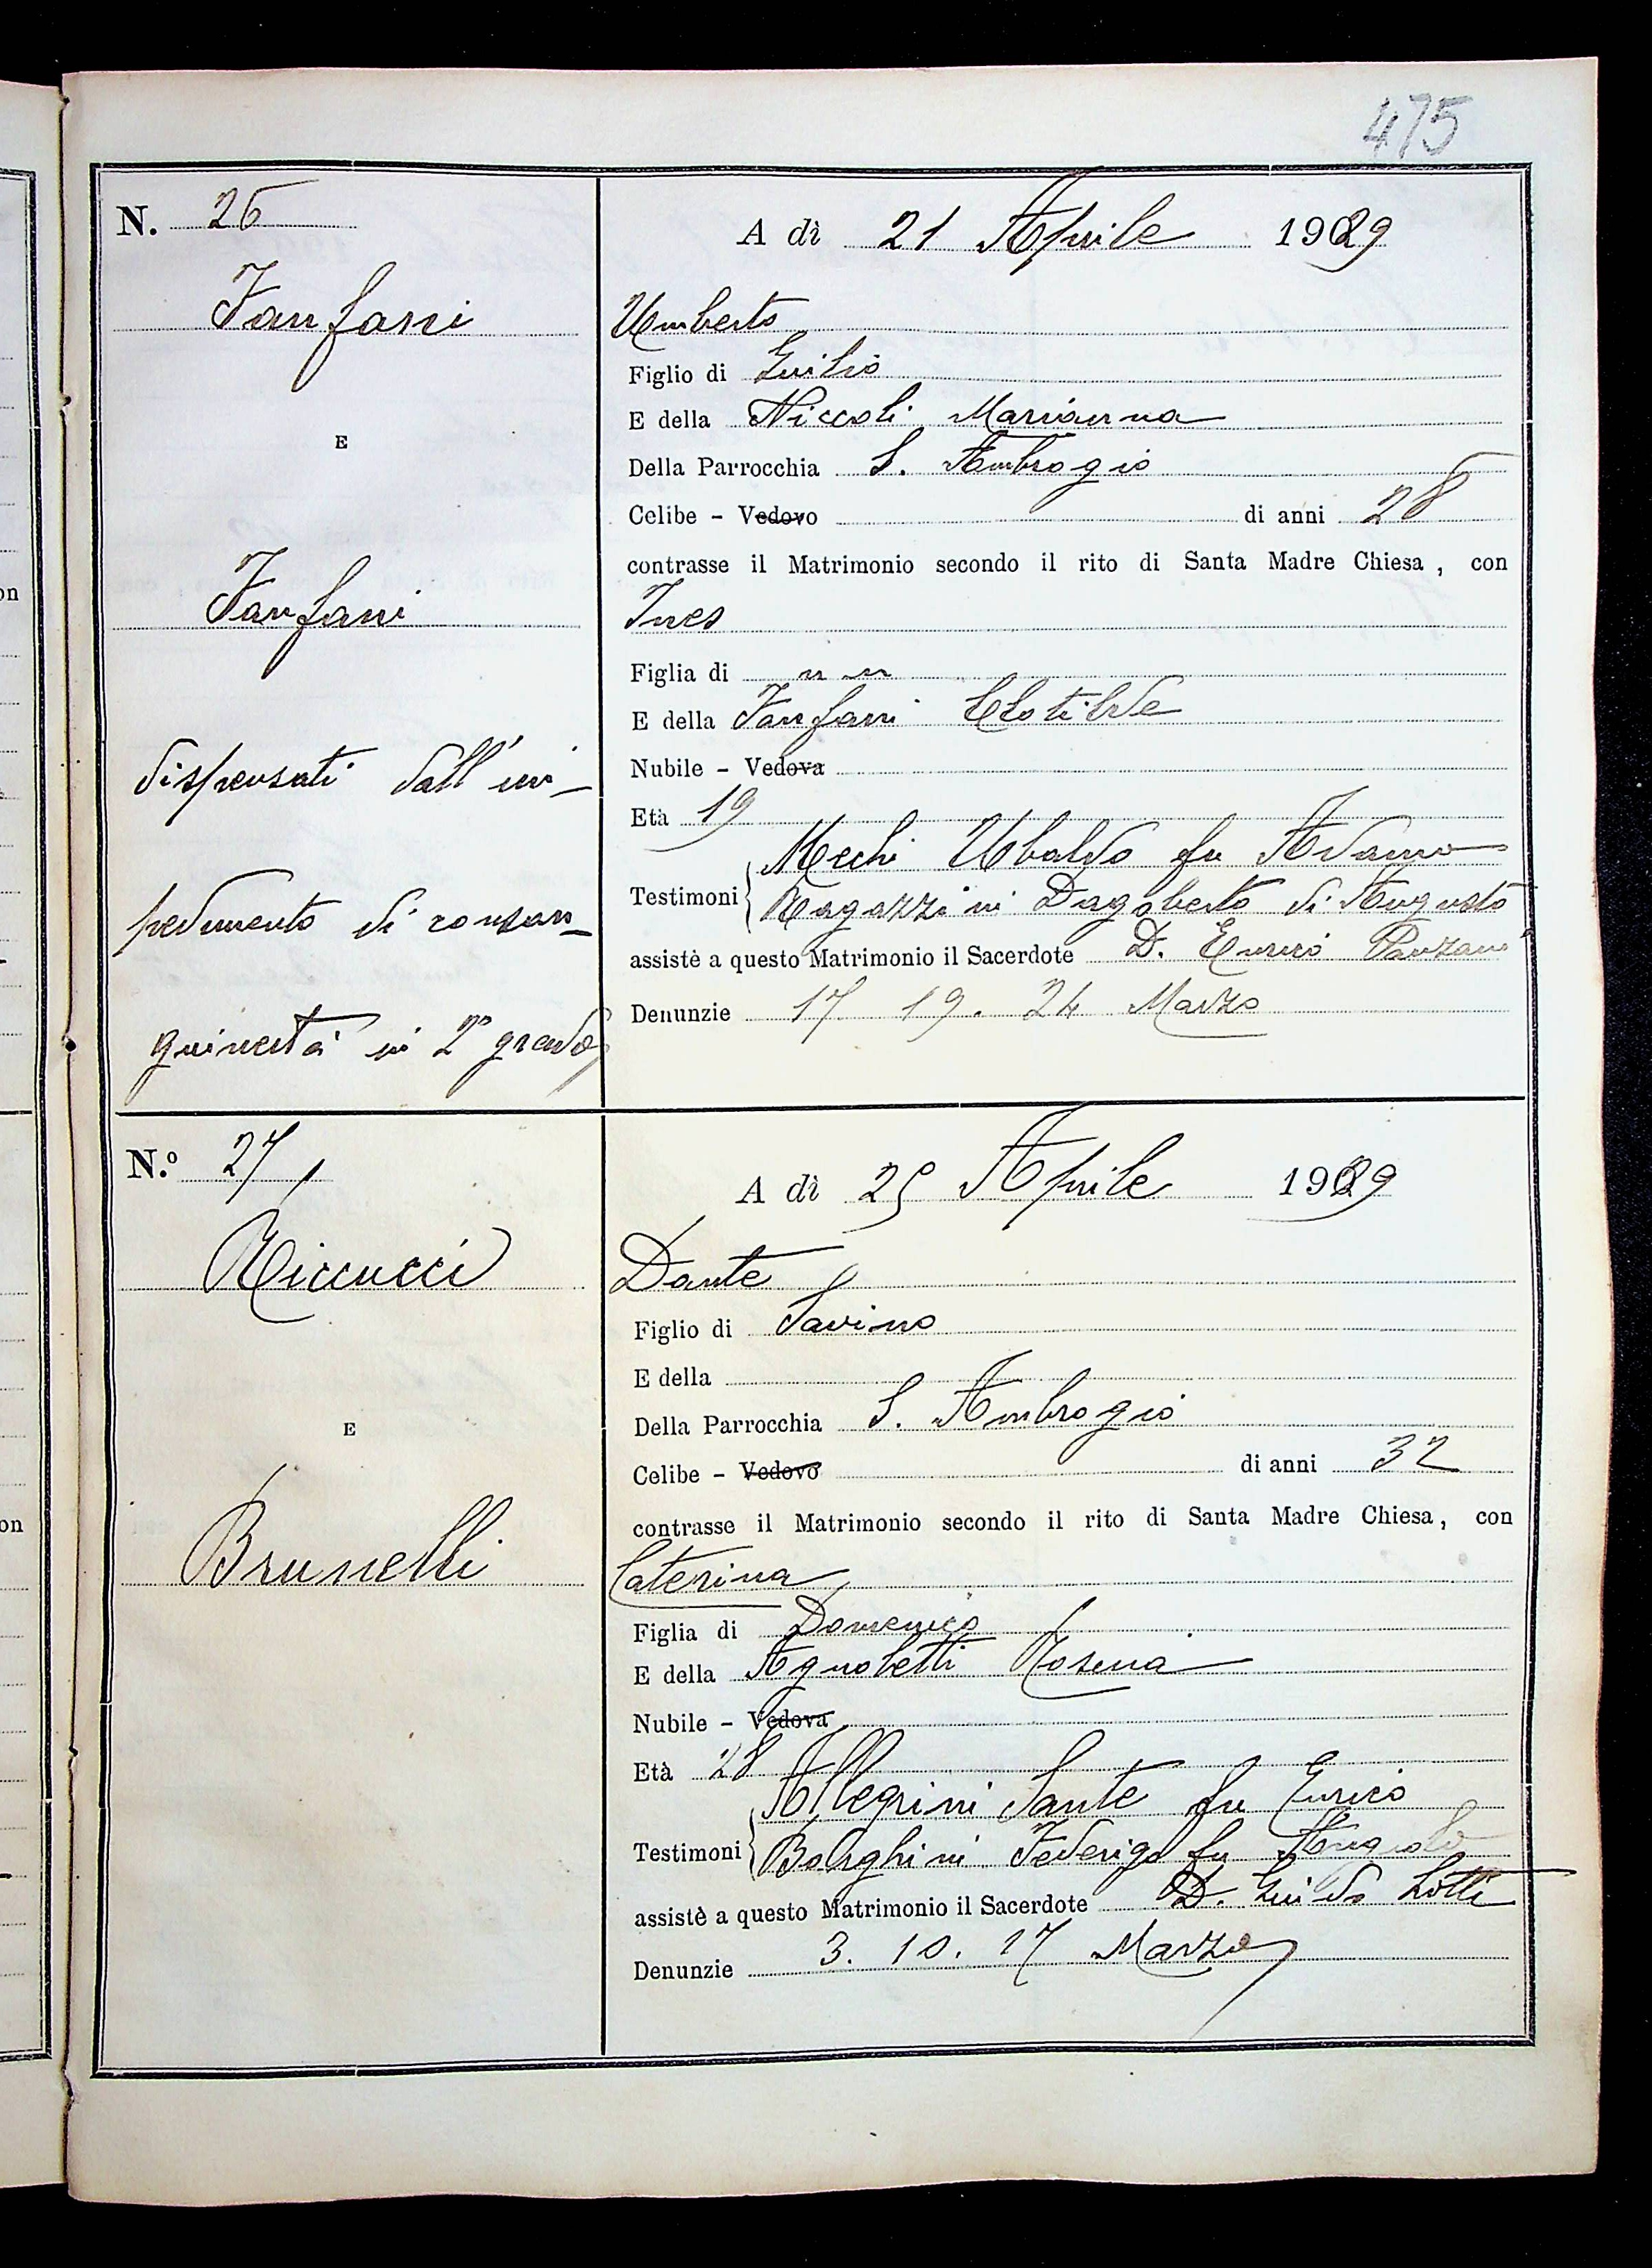 475
N. 26
A dì 21 Aprile 1929
Fanfani
Umberto
Figlio di Guilio
E della Niccoli Marianna
E
Della Parrocchia S. Ambrogio
Celibe - Vedovo di anni 28
contrasse il Matrimonio secondo il rito di Santa Madre Chiesa, con
Fanfani
Ines
Figlia di n n
E della Fanfani Clotilde
dispensati dall'im-
pedimento di consan-
guineità in 2º grado
Nubile - Vedova
Età 19
Testimoni
Mechi Ubaldo fu Adamo
Ragazzini Dagoberto di Augusto
assistè a questo Matrimonio il Sacerdote D. Enrico Panzani
Denunzie 17. 19. 24 Marzo
N.º 27
A dì 25 Aprile 1929
Riccucci
Dante
Figlio di Savino
E della
E
Della Parrocchia S. Ambrogio
Celibe - Vedovo di anni 32
contrasse il Matrimonio secondo il rito di Santa Madre Chiesa, con
Brunelli
Caterina
Figlia di Domenico
E della Agnoletti Rosina
Nubile - Vedova
Età 28
Testimoni
Allegrini Sante fu Enrico
Borghini Federigo fu Angiolo
assistè a questo Matrimonio il Sacerdote D. Guido Lotti
Denunzie 3. 10. 17 Marzo
on
on